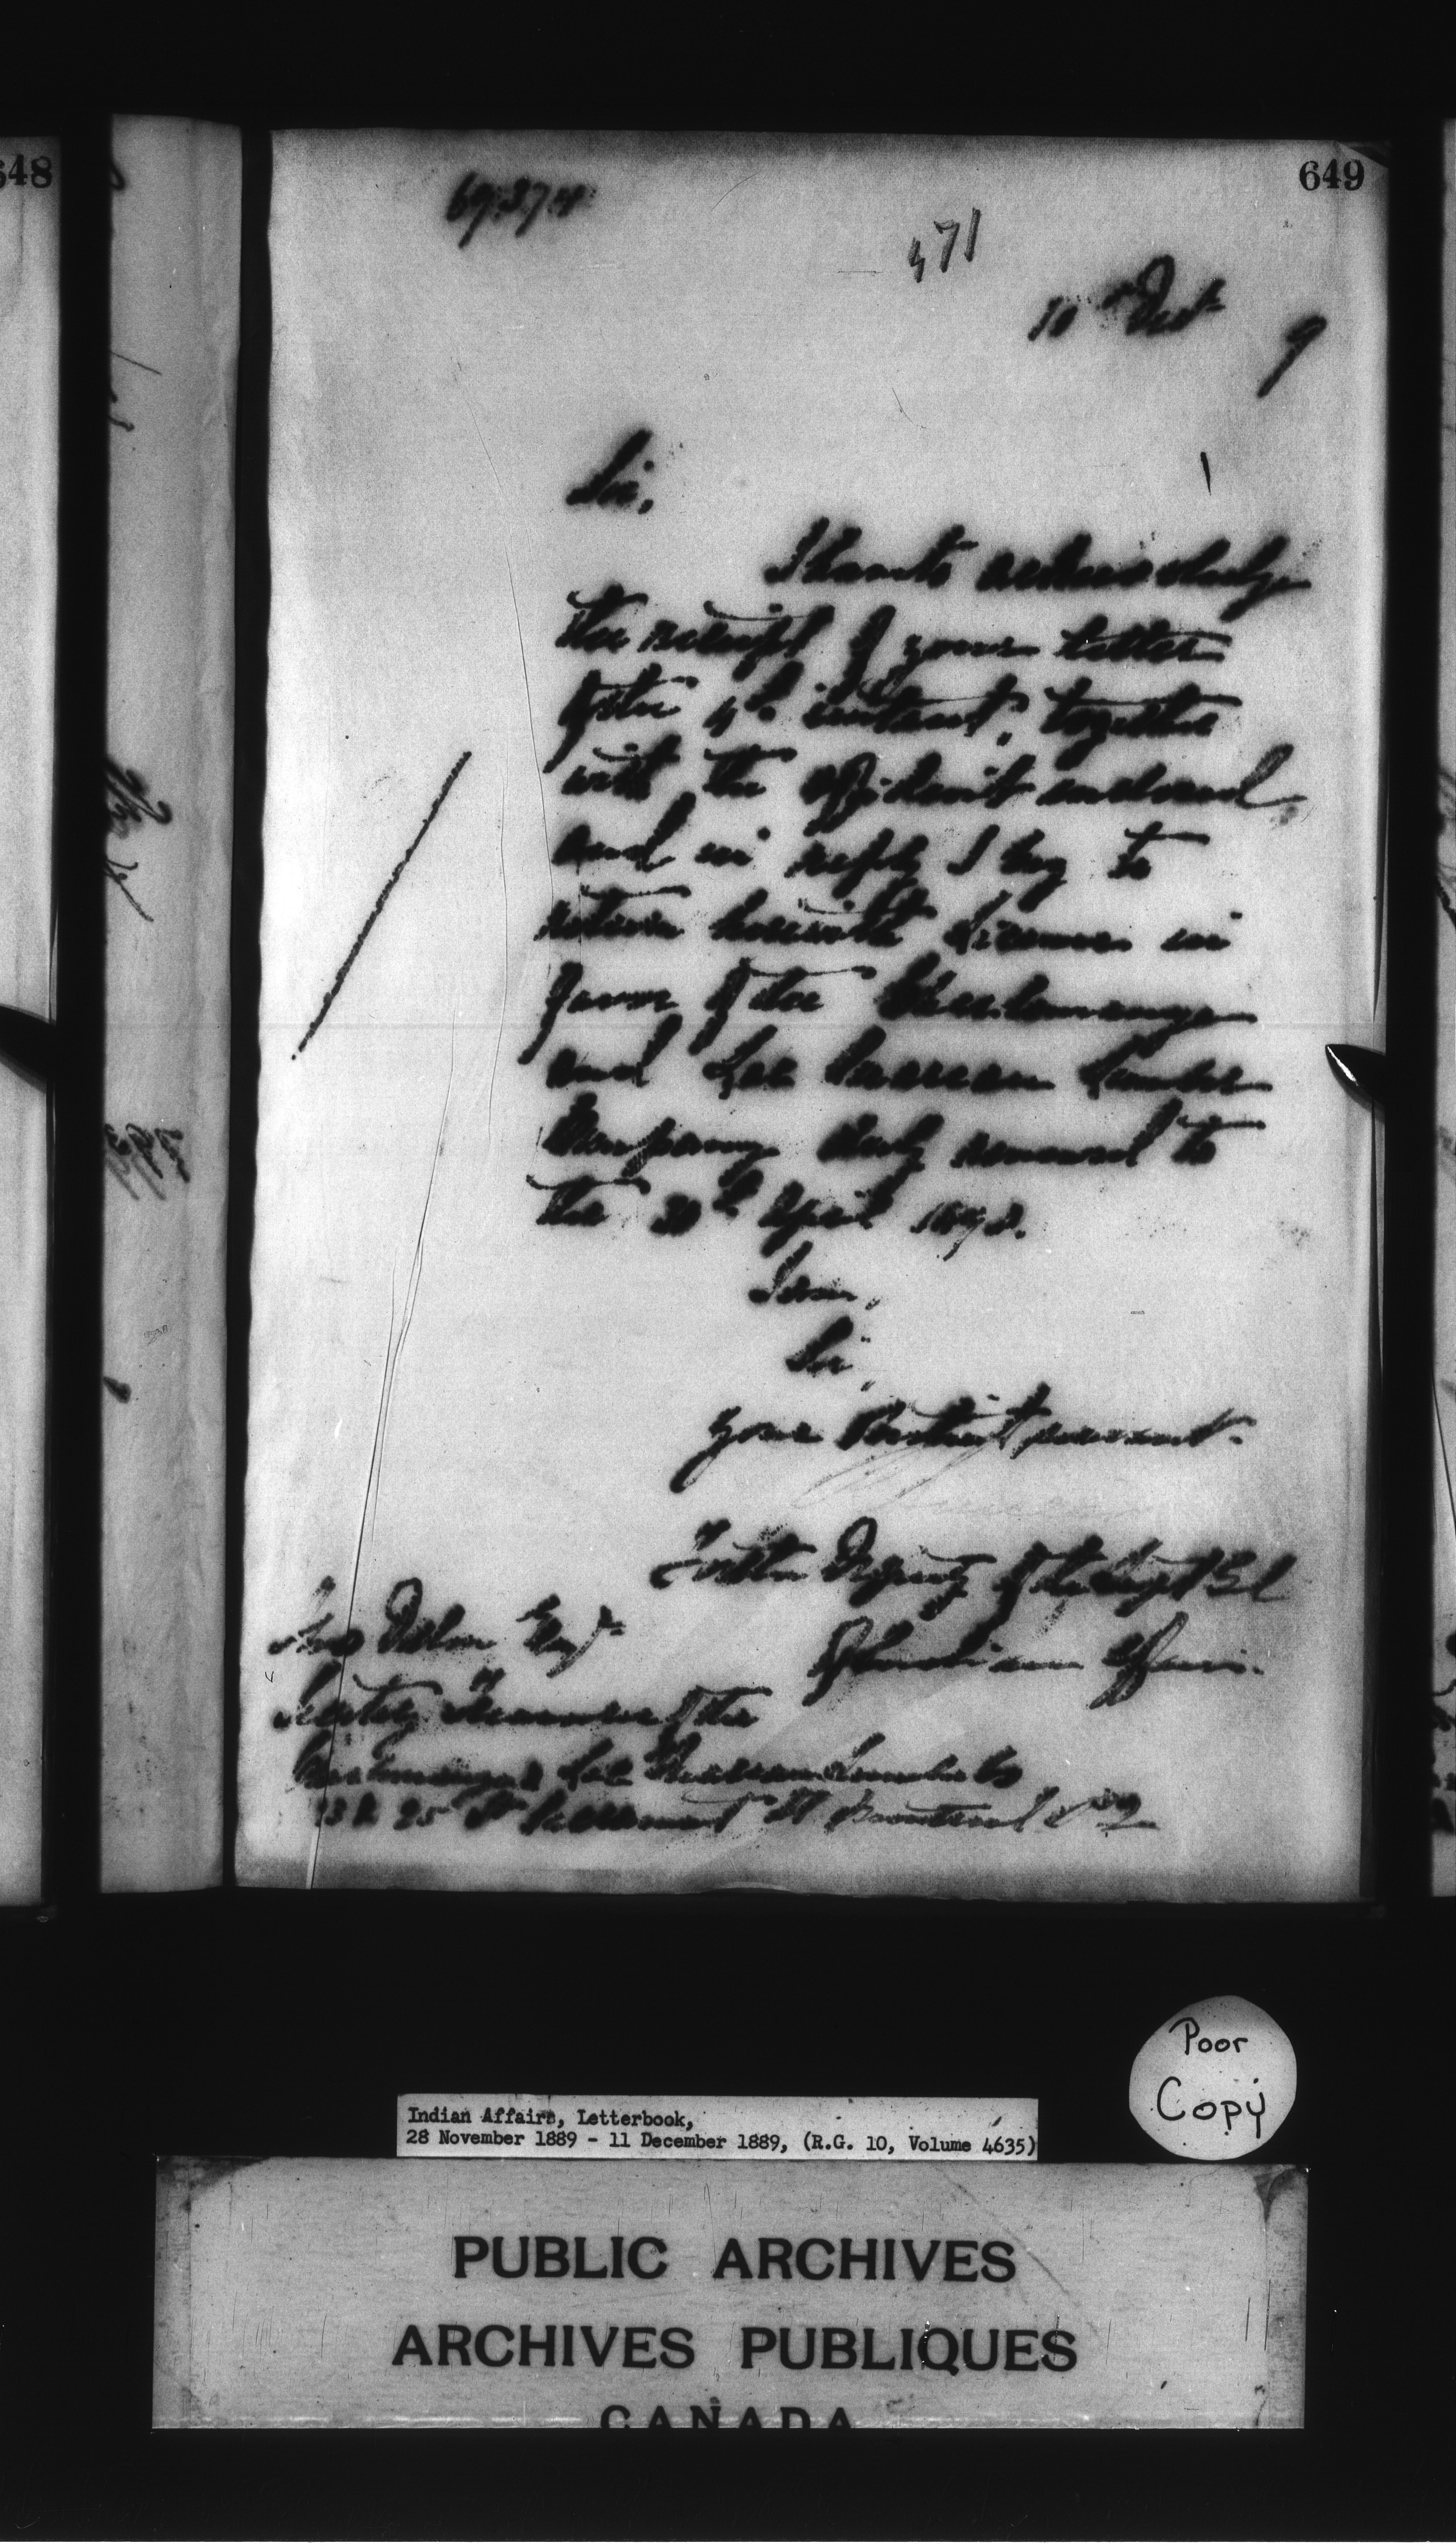 648
649
471
10th Dect 9
Sir,
I have to acknowledge
the receipt of your letter
of the 4th instant, together
with the affidavit enclosed
and in reply I beg to
return herewith License in
favor of the
and Lac Lumber
Company duly renewed to
the 30th April 1890.
I am,
Sir,
Your Obedient servant.
For the Deputy of the Supt Gl
of Indian Affairs.
Esqr
Secretary Treasurer of the
Lac Lumber Co
St Sacrement St Montreal P.Q.
Poor
Copy
Indian Affairs, Letterbook,
28 November 1889 - 11 December 1889, (R.G. 10, Volume 4635)
PUBLIC ARCHIVES
ARCHIVES PUBLIQUES
CANADA